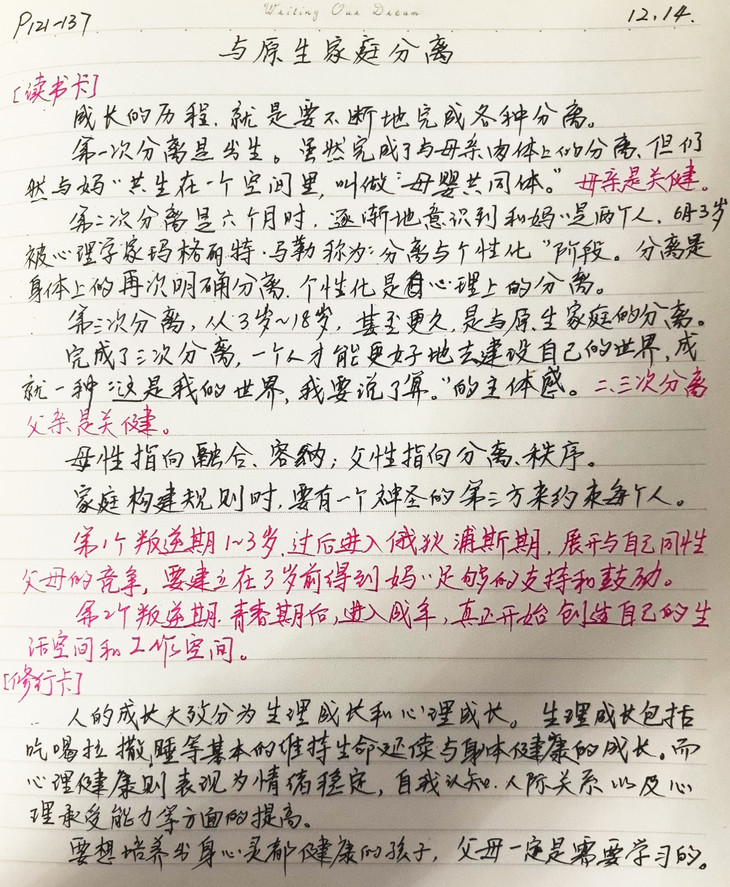 P121-137
Writing Our Dream
12.14.
与原生家庭分离
[读书卡]
成长的历程，就是要不断地完成各种分离。
第一次分离是出生。虽然完成了与母亲肉体上的分离、但仍
然与妈〃共生在一个空间里，叫做"母婴共同体。" 母亲是关健。
第二次分离是六个月时，逐渐地意识到和妈〃是两个人，6月3岁
被心理学家玛格丽特·马勒称为"分离与个性化"阶段。分离是
身体上的再次明确分离，个性化是自心理上的分离。
第三次分离，从3岁~18岁，甚至更久，是与原生家庭的分离。
完成了三次分离，一个人才能更好地去建设自己的世界，成
就一种"这是我的世界，我要说了算。"的主体感。二、三次分离
父亲是关健。
母性指向融合、容纳；父性指向分离、秩序。
家庭构建规则时，要有一个神圣的第三方来约束每个人。
第1个叛逆期1~3岁，过后进入俄狄浦斯期，展开与自己同性
父母的竞争，要建立在3岁前得到妈〃足够的支持和鼓励。
第2个叛逆期，青春期后，进入成年，真正开始创造自己的生
活空间和工作空间。
[修行卡]
人的成长大致分为生理成长和心理成长。生理成长包括
吃喝拉撒睡等基本的维持生命延续与身体健康的成长。而
心理健康则表现为情绪稳定，自我认知，人际关系以及心
理承受能力等方面的提高。
要想培养出身心灵都健康的孩子，父母一定是需要学习的。